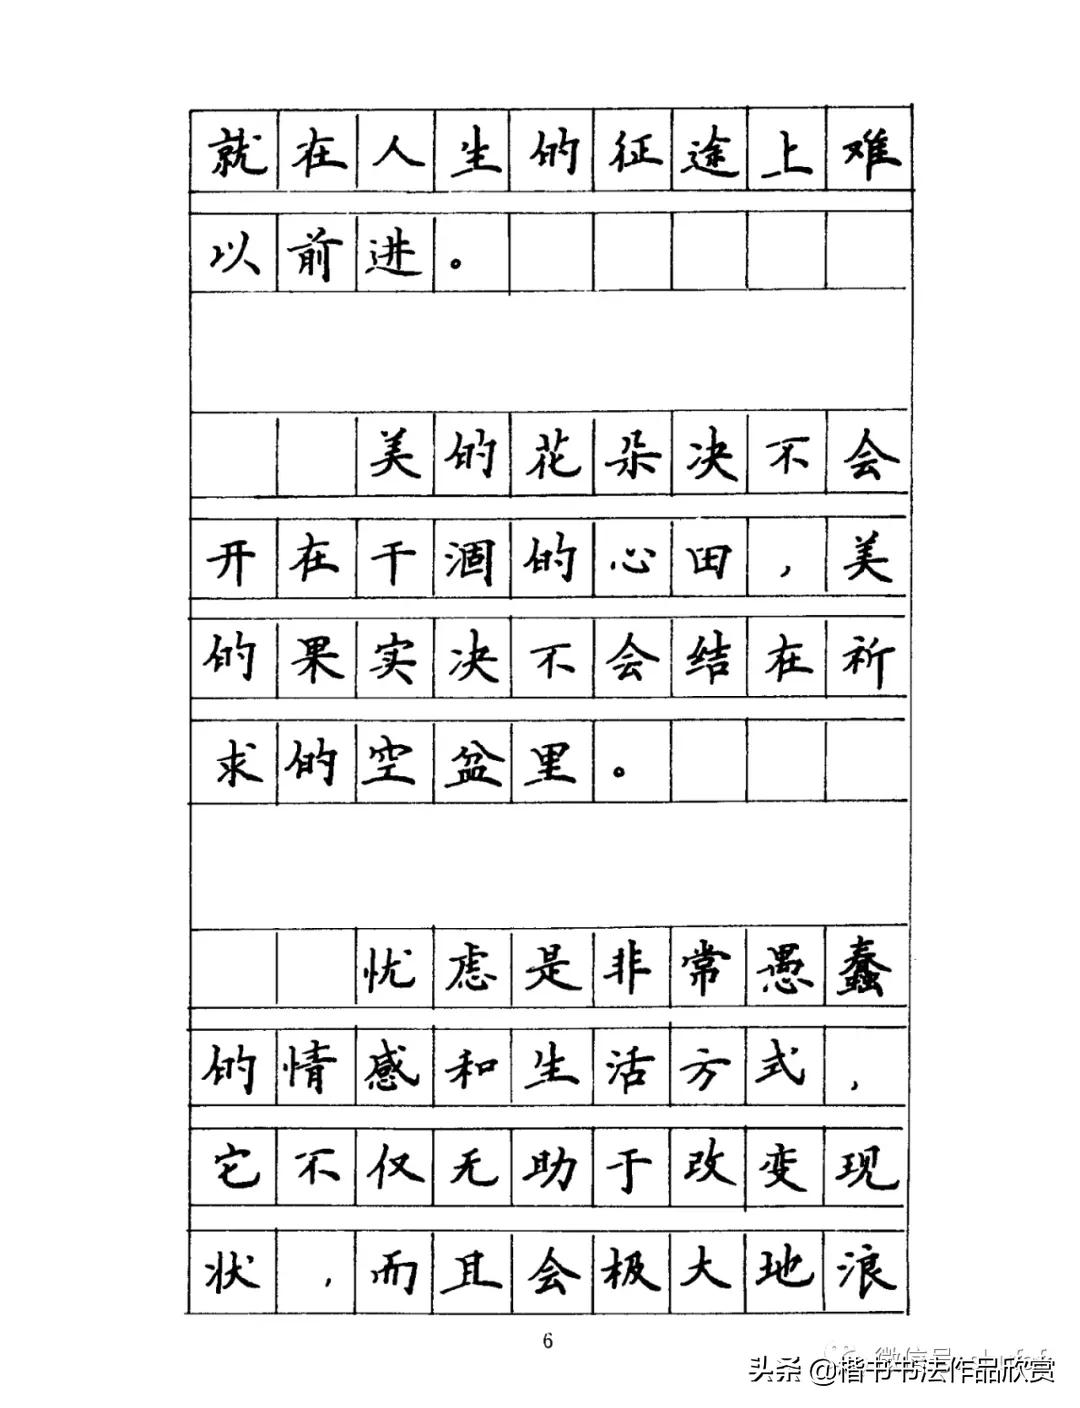 就在人生的征途上难
以前进。
美的花朵决不会
开在干涸的心田，美
的果实决不会结在祈
求的空盆里。
忧虑是非常愚蠢
的情感和生活方式，
它不仅无助于改变现
状，而且会极大地浪
6
微信号
头条 @楷书书法作品欣赏